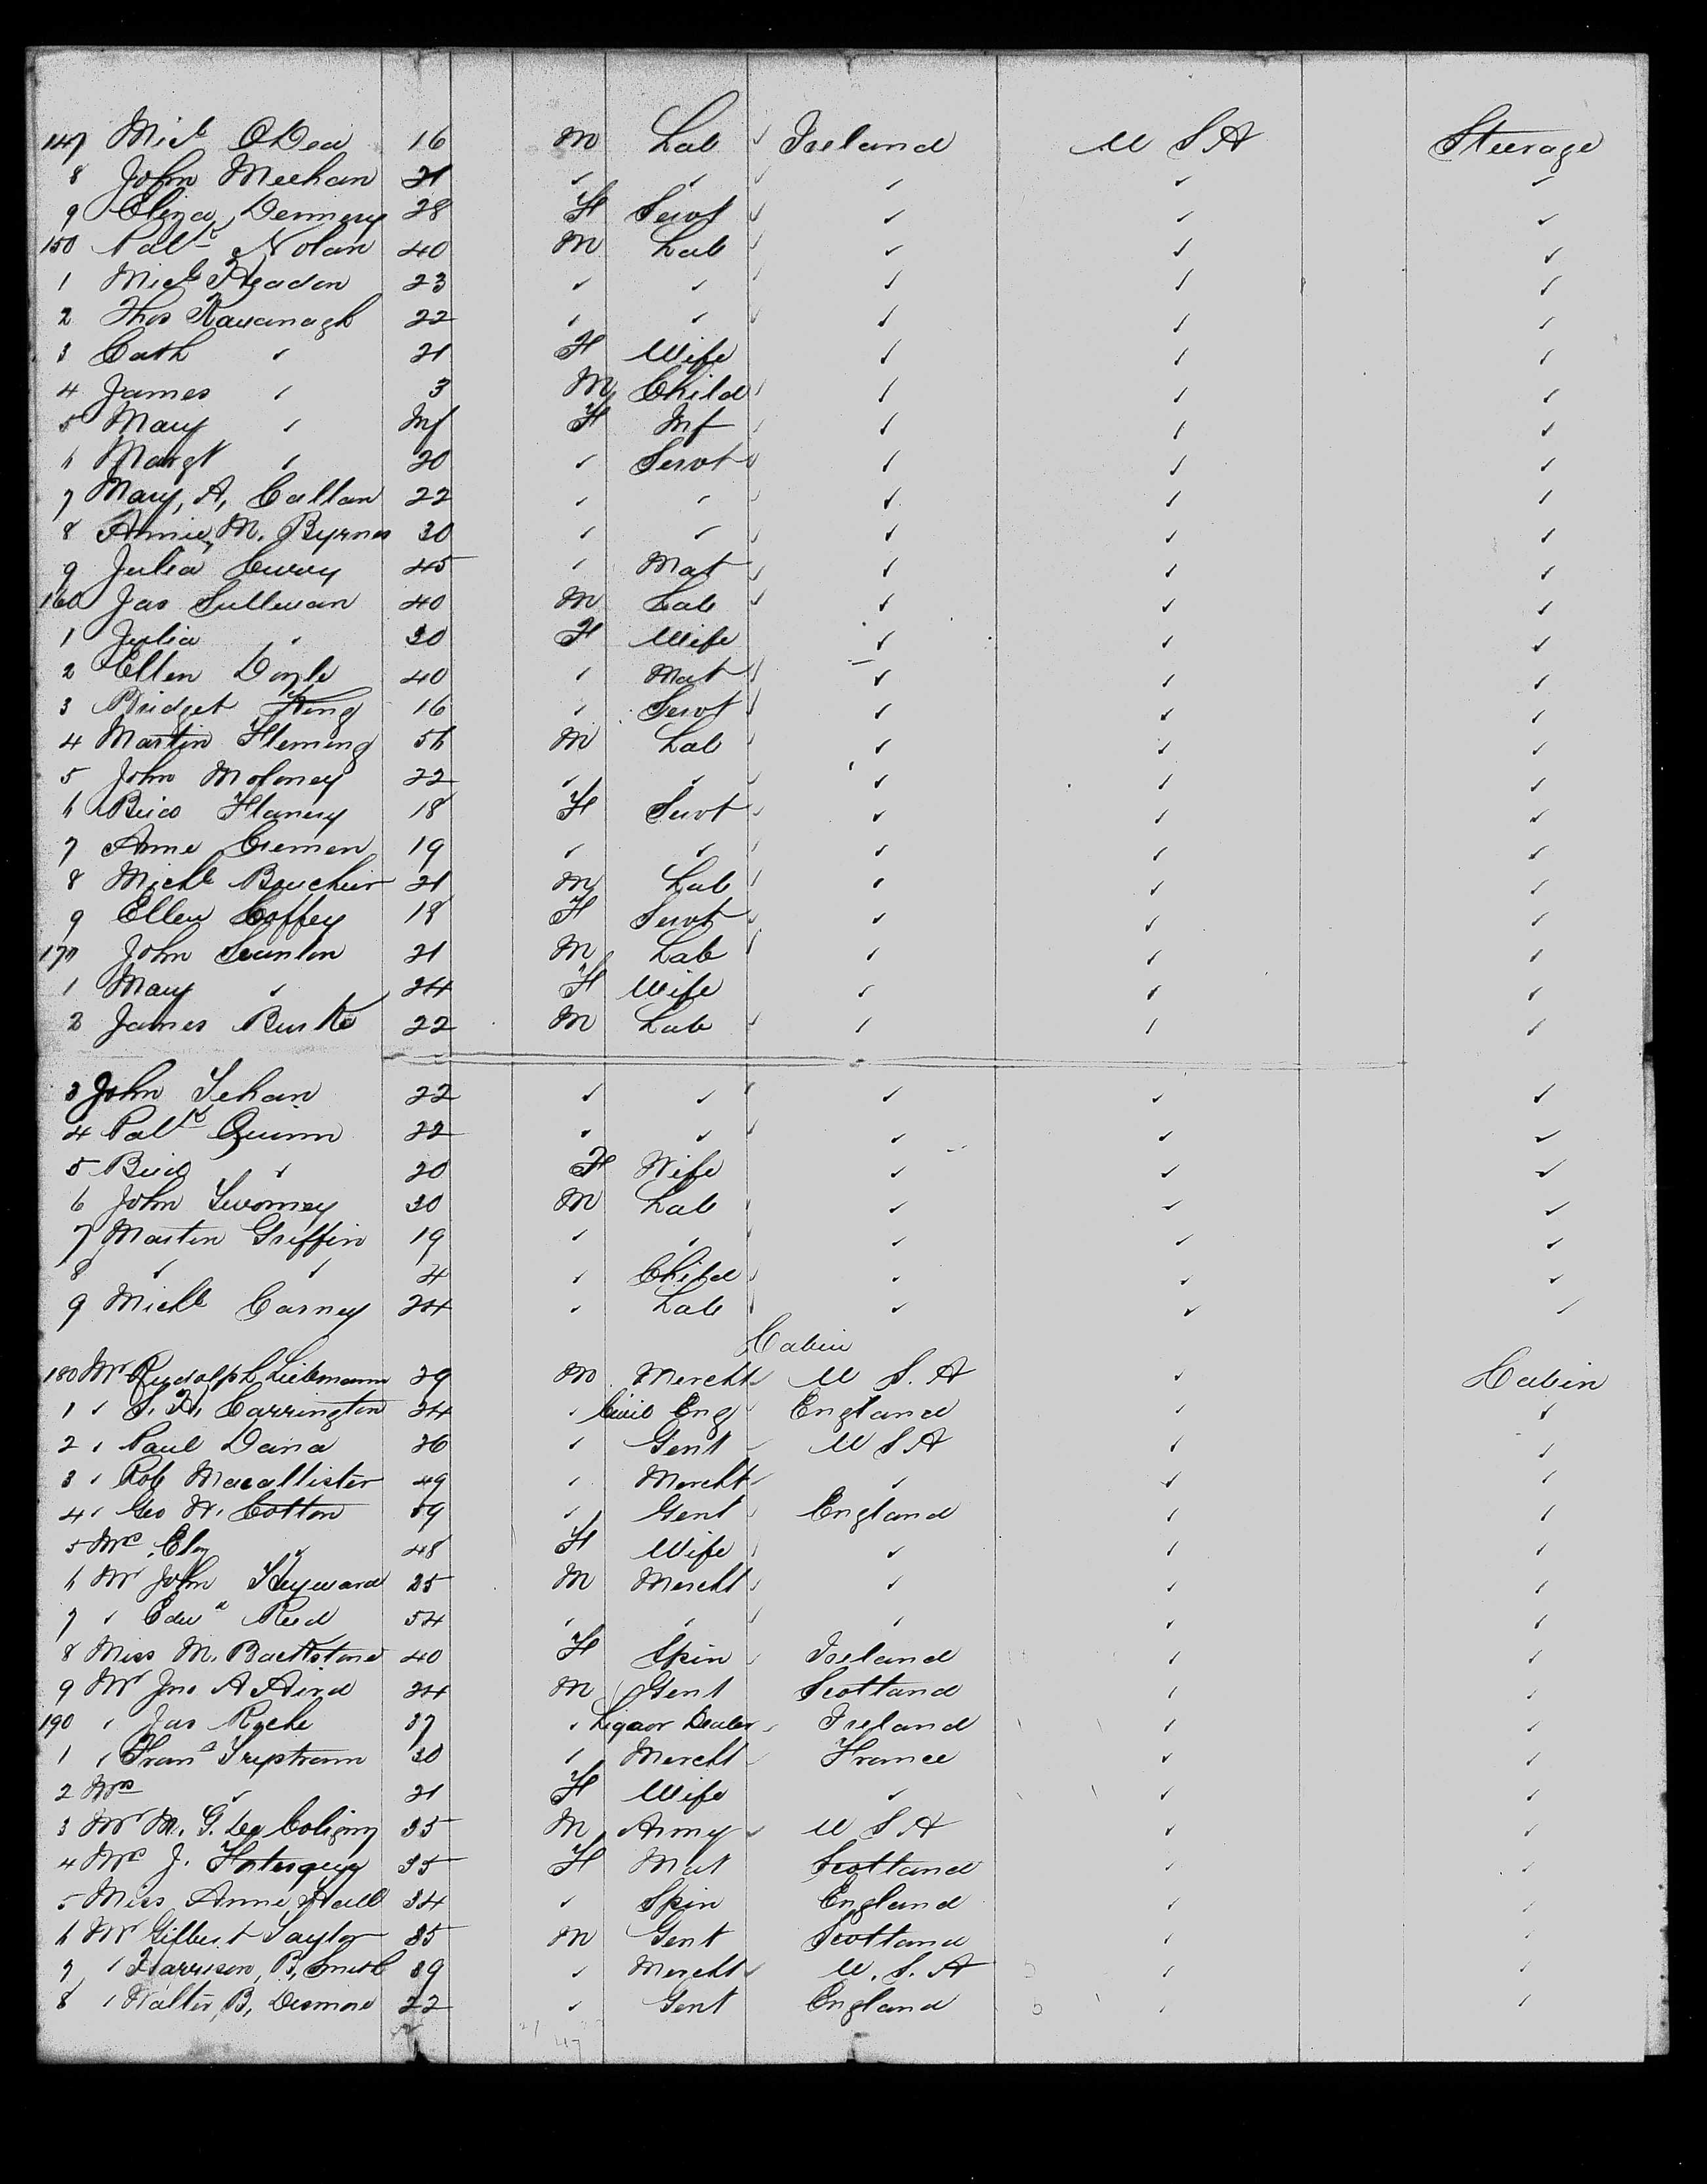 147 Michl ODea 16 M Lab ✓ Ireland U S A Steerage
8 John Meehan 21 ✓ ✓ ✓ ✓ ✓ ✓
9 Eliza Dennery 28 F Servt ✓ ✓ ✓ ✓
150 Patk Nolan 40 M Lab ✓ ✓ ✓ ✓
1 Michl 23 ✓ ✓ ✓ ✓ ✓ ✓
2 Thos Kavanagh 22 ✓ ✓ ✓ ✓ ✓ ✓
3 Cath ✓ 21 F Wife ✓ ✓ ✓
4 James ✓ 3 M Child ✓ ✓ ✓ ✓
5 Mary ✓ Inf F Inf ✓ ✓ ✓ ✓
6 Margt ✓ 20 ✓ Servt ✓ ✓ ✓ ✓
7 Mary, A, Callan 22 ✓ ✓ ✓ ✓ ✓ ✓
8 Annie, M. Byrnes 30 ✓ ✓ ✓ ✓ ✓ ✓
9 Julia Curry 45 ✓ Mat ✓ ✓ ✓ ✓
160 Jas Sullivan 40 M Lab ✓ ✓ ✓ ✓
1 Julia ✓ 30 F Wife ✓ ✓ ✓
2 Ellen Doyle 40 ✓ Mat ✓ ✓ ✓ ✓
3 Bridget King 16 ✓ Servt ✓ ✓ ✓ ✓
4 Martin Fleming 56 M Lab ✓ ✓ ✓ ✓
5 John Moloney 22 ✓ ✓ ✓ ✓ ✓ ✓
6 Brid Flanery 18 F Servt ✓ ✓ ✓ ✓
7 Anne Cremen 19 ✓ ✓ ✓ ✓ ✓ ✓
8 Michl Bouchier 21 M Lab ✓ ✓ ✓ ✓
9 Ellen Coffey 18 F Servt ✓ ✓ ✓ ✓
170 John Scunlon 21 M Lab ✓ ✓ ✓ ✓
1 Mary ✓ 24 F Wife ✓ ✓ ✓
2 James Burke 22 M Lab ✓ ✓ ✓ ✓
3 John Tehan 22 ✓ ✓ ✓ ✓ ✓ ✓
4 Patk Quinn 22 ✓ ✓ ✓ ✓ ✓ ✓
5 Brid ✓ 20 F Wife ✓ ✓ ✓
6 John Twomey 30 M Lab ✓ ✓ ✓ ✓
7 Martin Griffin 19 ✓ ✓ ✓ ✓ ✓ ✓
8 ✓ ✓ 4 ✓ Child ✓ ✓ ✓ ✓
9 Michl Carney 24 ✓ Lab ✓ ✓ ✓ ✓
Cabin
180 Mr Rudolph Liebmann 29 M Mercht ✓ U S. A ✓ Cabin
1 ✓ S. H. Carrington 34 ✓ Civil Eng ✓ England ✓ ✓
2 ✓ Paul Dana 26 ✓ Gent ✓ U S A ✓ ✓
3 ✓ Rob Macallister 49 ✓ Mercht ✓ ✓ ✓ ✓
4 ✓ Geo W. Cotton 59 ✓ Gent ✓ England ✓ ✓
5 Mrs Elz ✓ 48 F Wife ✓ ✓ ✓ ✓
6 Mr John Heyward 25 M Mercht ✓ ✓ ✓ ✓
7 ✓ Edwd Reed 54 ✓ ✓ ✓ ✓ ✓ ✓
8 Miss M. Backstone 40 F Spin ✓ Ireland ✓ ✓
9 Mr Jno A Aird 24 M Gent Scotland ✓ ✓
190 ✓ Jas Roche 37 ✓ Liquor Dealer ✓ Ireland ✓ ✓
1 ✓ Frans 30 ✓ Mercht ✓ France ✓ ✓
2 Mrs ✓ 21 F Wife ✓ ✓ ✓
3 Mr M. G. De Coligny 35 M Army ✓ U S A ✓ ✓
4 Mrs J. 35 F Mat Scotland ✓ ✓
5 Miss Anne Hall 34 ✓ Spin England ✓ ✓
6 Mr Gilbert Taylor 35 M Gent Scotland ✓ ✓
7 ✓ Harrison, B, Smith 39 ✓ Mercht ✓ U. S. A ✓ ✓
8 ✓ Walter, B, Desmond 22 ✓ Gent England ✓ ✓